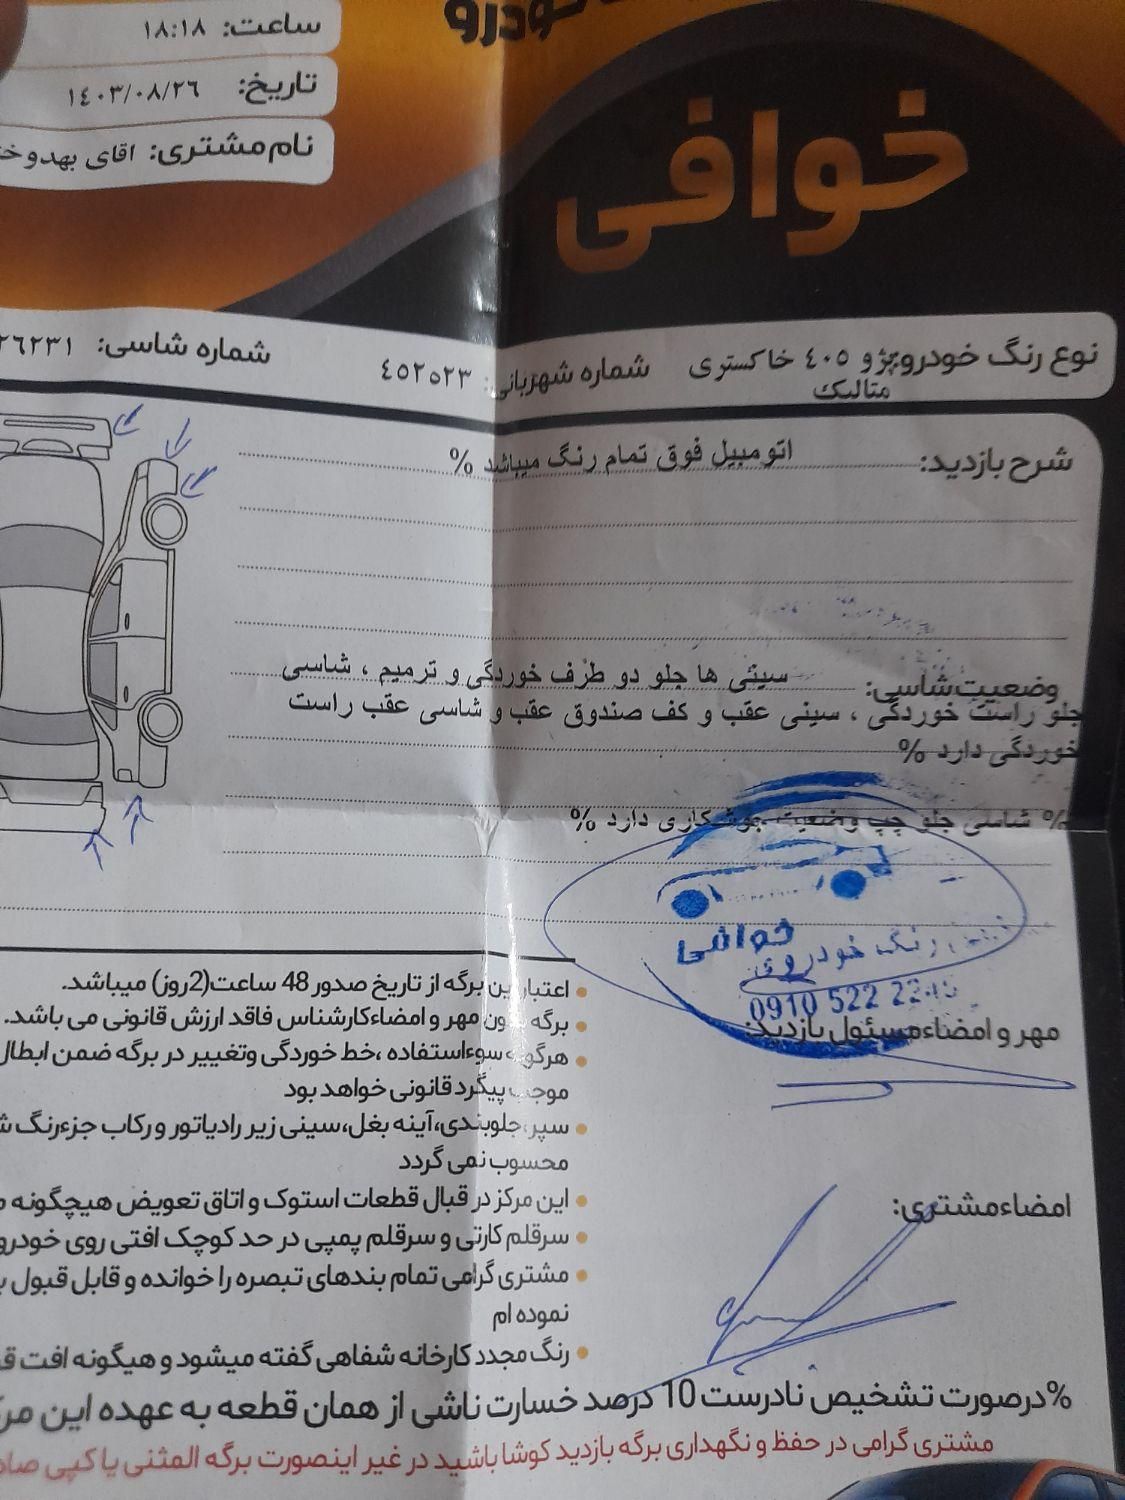 خودرو
ساعت: ۱۸:۱۸
تاریخ: ۱٤۰۳/۰۸/۲٦
نام مشتری: اقای
خوافی
نوع رنگ خودرو پژو ٤۰٥ خاکستری متالیک
شماره شهربانی: ٤٥۲٥۲۳
شماره شاسی:
شرح بازدید: اتومبیل فوق تمام رنگ میباشد %
وضعیت شاسی: سینی ها جلو دو طرف خوردگی و ترمیم ، شاسی
جلو راست خوردگی ، سینی عقب و کف صندوق عقب و شاسی عقب راست
خوردگی دارد %
% شاسی جلو چپ وضعیت جوشکاری دارد %
رنگ خودروی
خوافی
0910 522
مهر و امضاء مسئول بازدید:
امضاء مشتری:
اعتبار این برگه از تاریخ صدور 48 ساعت(2روز) میباشد.
برگه بدون مهر و امضاء کارشناس فاقد ارزش قانونی می باشد.
هرگونه سوءاستفاده ،خط خوردگی وتغییر در برگه ضمن ابطال
موجب پیگرد قانونی خواهد بود
سپر،جلوبندی،آینه بغل،سینی زیر رادیاتور و رکاب جزءرنگ
محسوب نمی گردد
این مرکز در قبال قطعات استوک و اتاق تعویض هیچگونه
سرقلم کارتی و سرقلم پمپی در حد کوچک افتی روی خودرو
مشتری گرامی تمام بندهای تبصره را خوانده و قابل قبول
نموده ام
رنگ مجدد کارخانه شفاهی گفته میشود و هیگونه افت
%درصورت تشخیص نادرست 10 درصد خسارت ناشی از همان قطعه به عهده این
مشتری گرامی در حفظ و نگهداری برگه بازدید کوشا باشید در غیر اینصورت برگه المثنی یا کپی